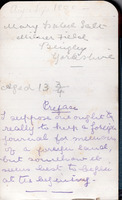 Mary Isabel Salt
Milner Field
Bingley
Yorkshire
Aged 13 3/4
Preface
I suppose one ought
really to keep a foreign
journal for
of a foreign land,
but somehow it
seems best to begin
at the beginning.